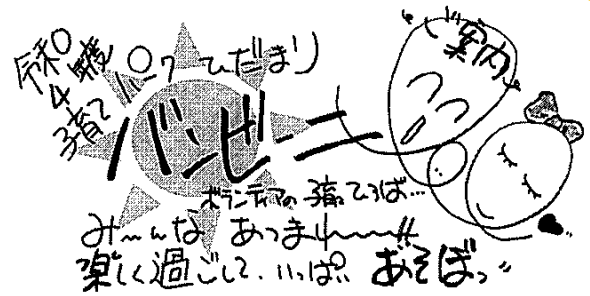 令和4年度
子育てパワひだまり
バンビーニ
〝ご案内〟
ボランティアの子育てひろば…
み〜んな あつまれ〜〜!!
楽しく過ごして、いっぱいあそぼっ〃